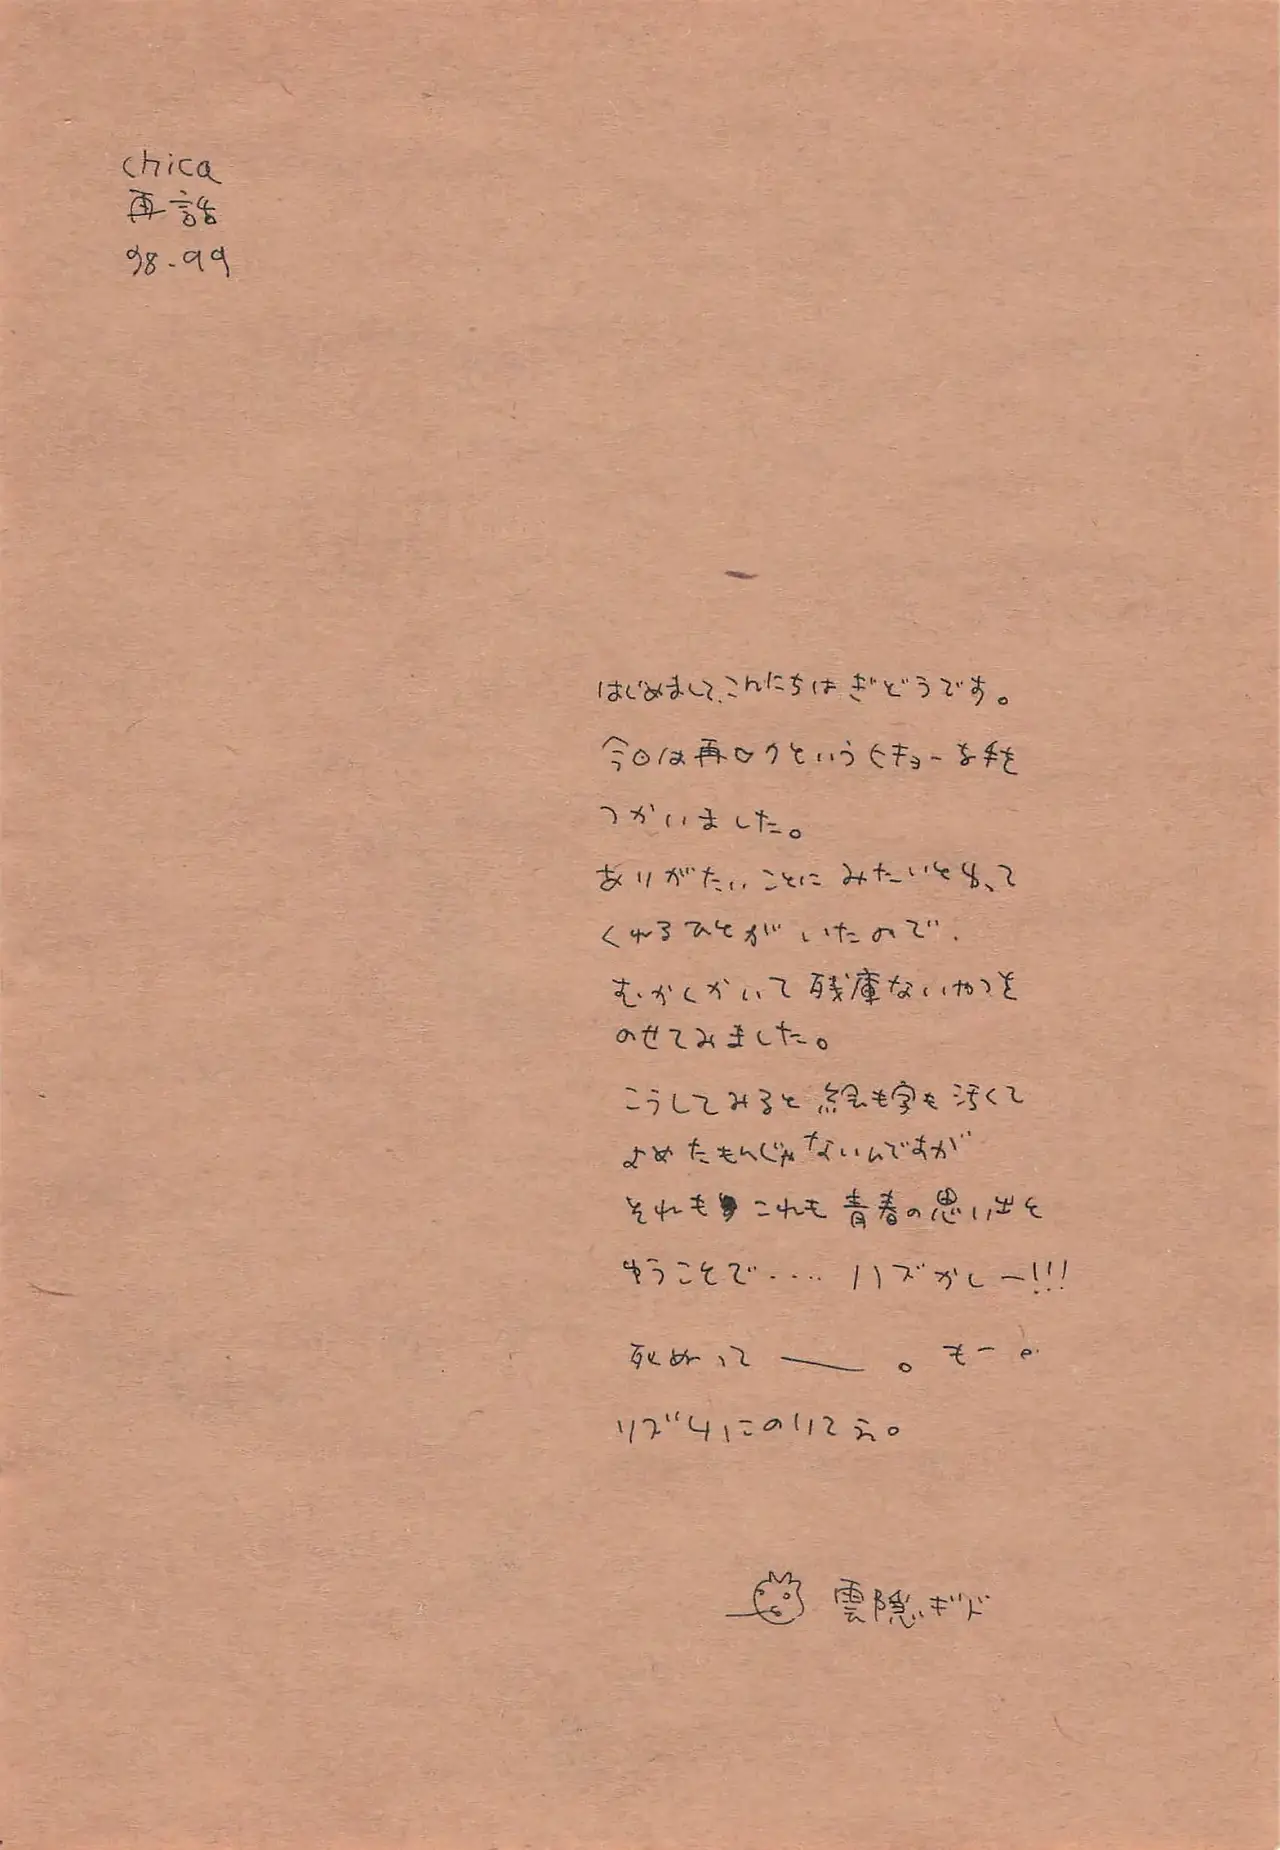 chica
再話
98-99
はじめまして、こんにちは ぎどうです。
今回は再ロクというヒキョーな手を
つかいました。
ありがたいことに みたいと
くれるひとが いたので、
むかしかいて 残庫ないやつを
のせてみました。
こうしてみると 絵も字も 汚くて
よめたもんじゃないんですが
それも これも 青春の思い出と
ゆうことで‥‥ ハズかしー!!!
死ぬって ―― 。もー
リズムにのりてえ。
雲隠ギド